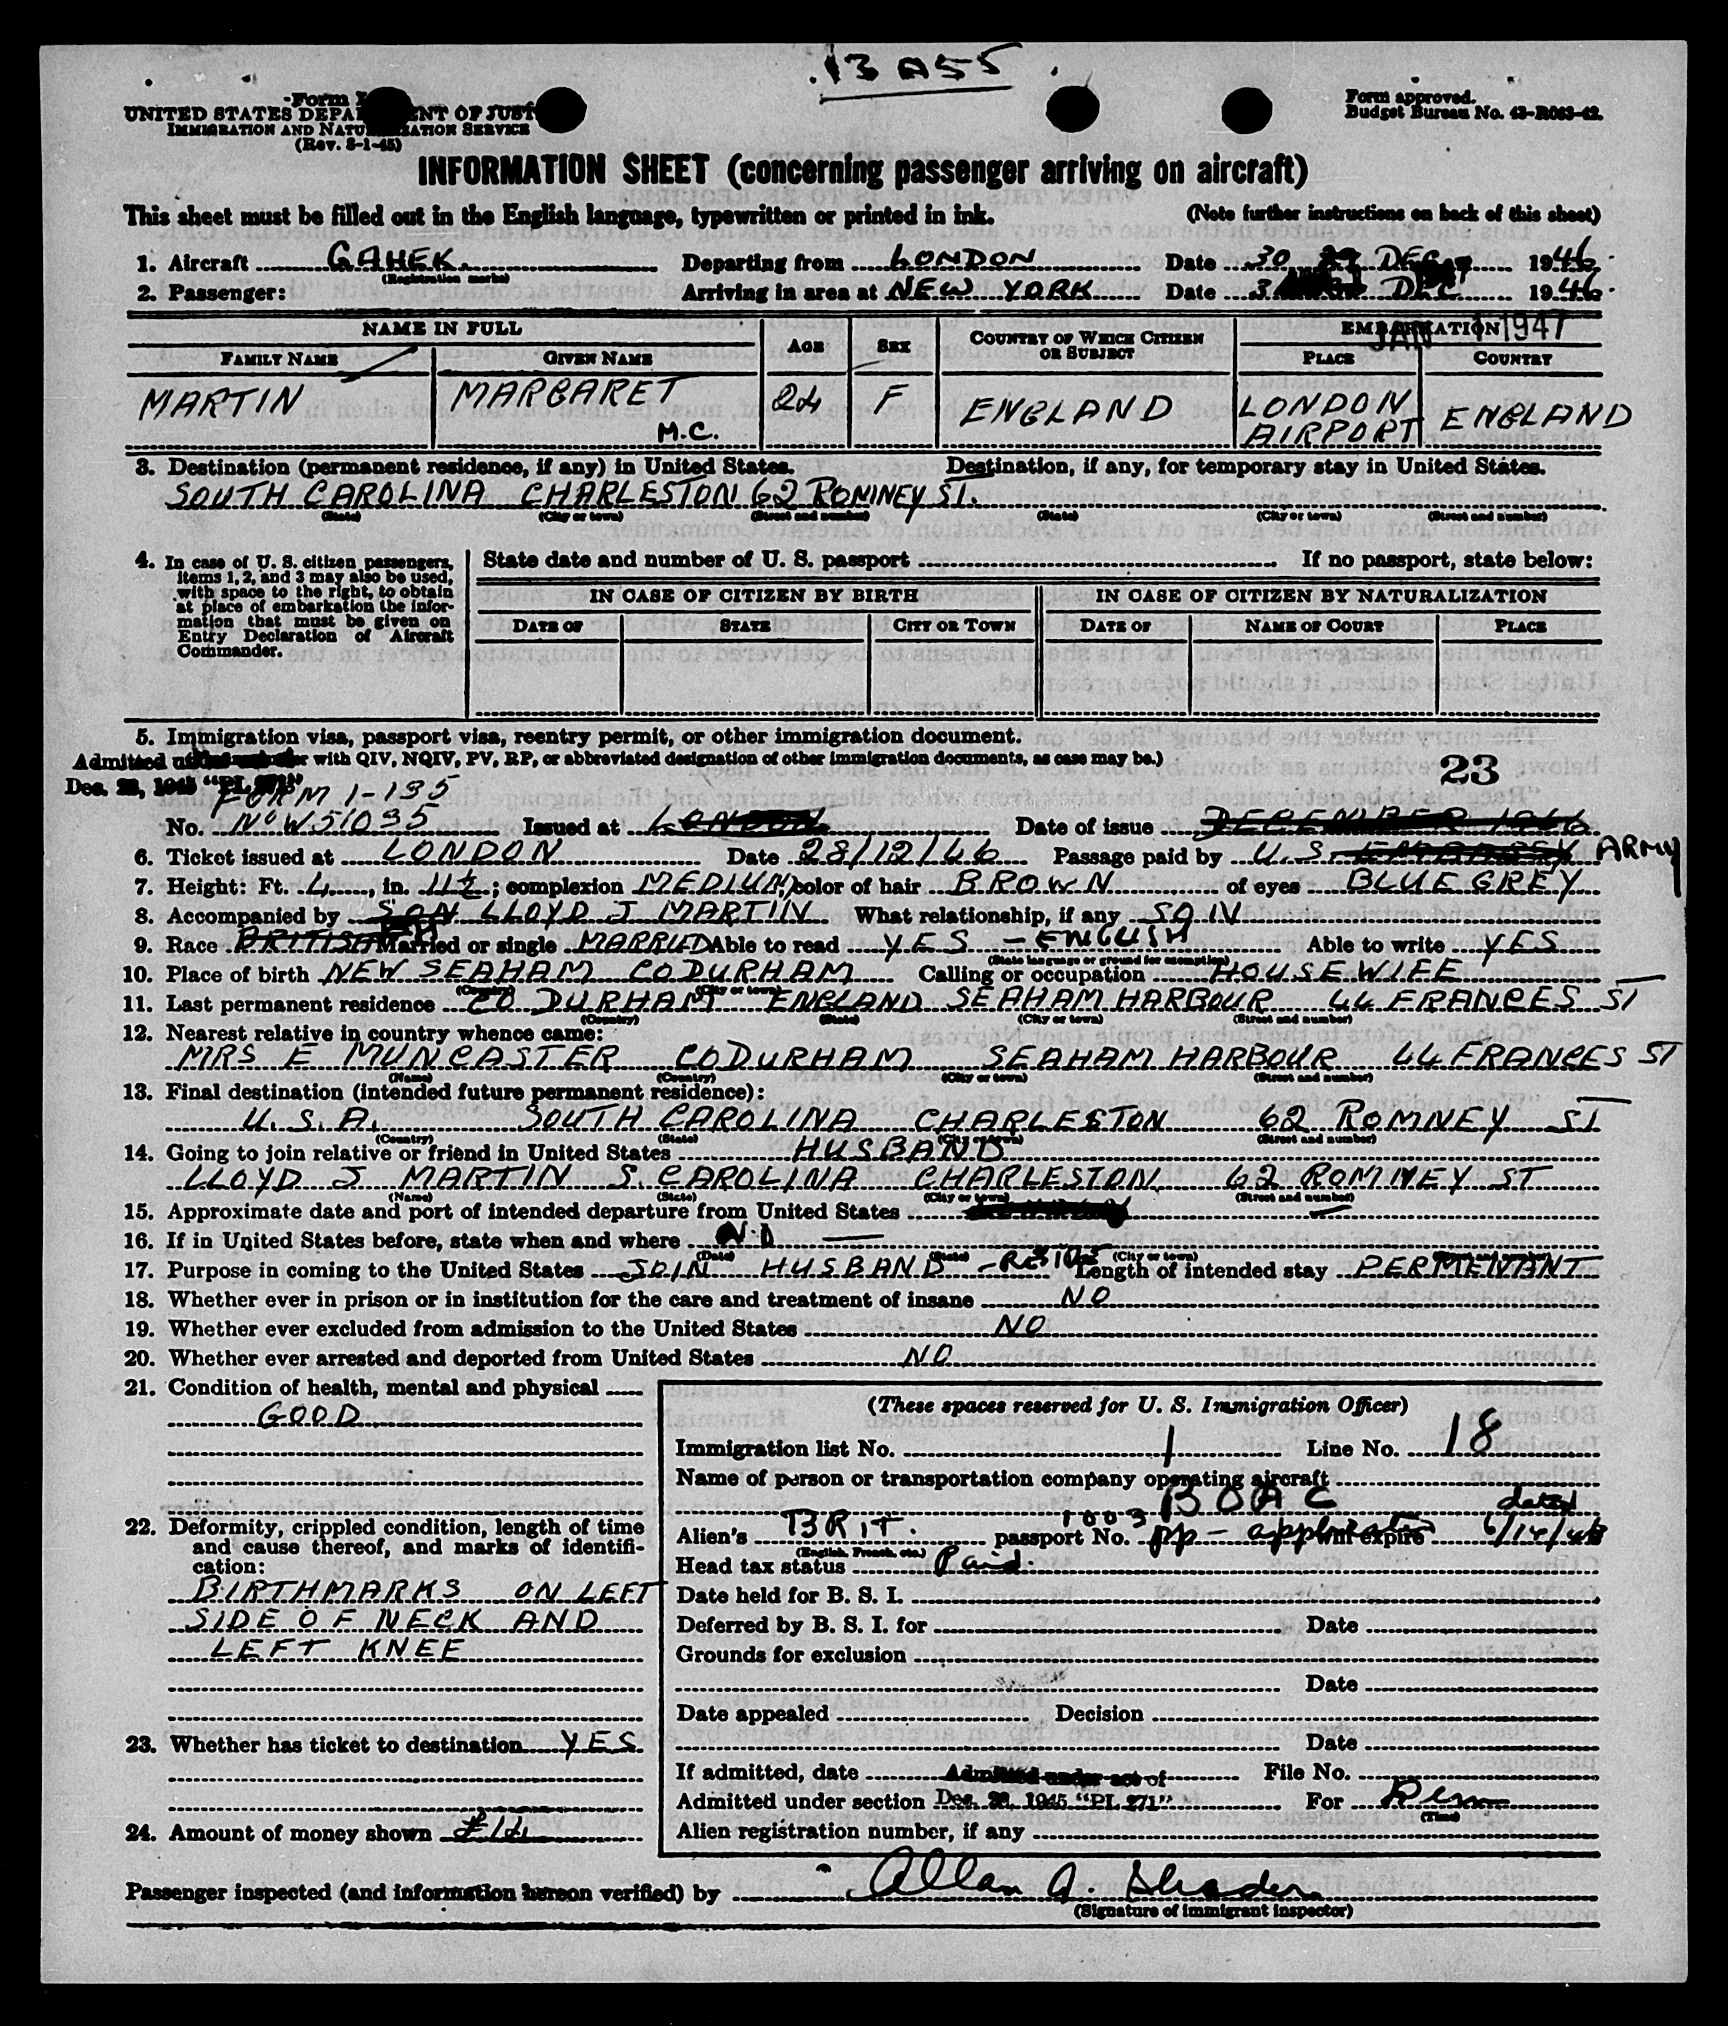 13 A55
Form I
UNITED STATES DEPARTMENT OF JUSTICE
IMMIGRATION AND NATURALIZATION SERVICE
(Rev. 8-1-45)
Form approved.
Budget Bureau No. 43-R083-42.
INFORMATION SHEET (concerning passenger arriving on aircraft)
This sheet must be filled out in the English language, typewritten or printed in ink. (Note further instructions on back of this sheet)
1. Aircraft GAHEK. Departing from LONDON Date 30 DEC 1946.
(Registration marks)
2. Passenger: Arriving in area at NEW YORK Date DEC 1946.
JAN 1 1947
NAME IN FULL AGE SEX COUNTRY OF WHICH CITIZEN OR SUBJECT EMBARKATION
FAMILY NAME GIVEN NAME PLACE COUNTRY
MARTIN MARGARET M.C. 24 F ENGLAND LONDON AIRPORT ENGLAND
3. Destination (permanent residence, if any) in United States. Destination, if any, for temporary stay in United States.
SOUTH CAROLINA CHARLESTON 62 ROMNEY ST.
(State) (City or town) (Street and number) (State) (City or town) (Street and number)
4. In case of U. S. citizen passengers, items 1, 2, and 3 may also be used, with space to the right, to obtain at place of embarkation the information that must be given on Entry Declaration of Aircraft Commander.
State date and number of U. S. passport If no passport, state below:
IN CASE OF CITIZEN BY BIRTH IN CASE OF CITIZEN BY NATURALIZATION
DATE OF STATE CITY OR TOWN DATE OF NAME OF COURT PLACE
5. Immigration visa, passport visa, reentry permit, or other immigration document.
Admitted with QIV, NQIV, PV, RP, or abbreviated designation of other immigration documents, as case may be.)
Dec. 28, 1945 "PL 271" 23
FORM 1-135
No. No W51035 Issued at LONDON Date of issue DECEMBER 1946
6. Ticket issued at LONDON Date 28/12/46 Passage paid by U.S. EMBASSY ARMY
7. Height: Ft. 4, in. 11½; complexion MEDIUM; color of hair BROWN of eyes BLUE GREY
8. Accompanied by SON LLOYD J MARTIN What relationship, if any SON
9. Race BRITISH Married or single MARRIED Able to read YES - ENGLISH Able to write YES
(State language or ground for exemption)
10. Place of birth NEW SEAHAM CO DURHAM Calling or occupation HOUSEWIFE
(Country) (City or town)
11. Last permanent residence CO DURHAM ENGLAND SEAHAM HARBOUR 44 FRANCES ST
(Country) (State) (City or town) (Street and number)
12. Nearest relative in country whence came:
MRS E MUNCASTER CO DURHAM SEAHAM HARBOUR 44 FRANCES ST
(Name) (Country) (City or town) (Street and number)
13. Final destination (intended future permanent residence):
U.S.A. SOUTH CAROLINA CHARLESTON 62 ROMNEY ST
(Country) (State) (City or town) (Street and number)
14. Going to join relative or friend in United States HUSBAND
LLOYD J MARTIN S. CAROLINA CHARLESTON 62 ROMNEY ST
(Name) (State) (City or town) (Street and number)
15. Approximate date and port of intended departure from United States —
16. If in United States before, state when and where NO —
(Date) (State) (City or town) (Street and number)
17. Purpose in coming to the United States JOIN HUSBAND - RESIDE Length of intended stay PERMENTANT
18. Whether ever in prison or in institution for the care and treatment of insane NO
19. Whether ever excluded from admission to the United States NO
20. Whether ever arrested and deported from United States NO
21. Condition of health, mental and physical
GOOD
22. Deformity, crippled condition, length of time and cause thereof, and marks of identification:
BIRTHMARKS ON LEFT
SIDE OF NECK AND
LEFT KNEE
23. Whether has ticket to destination YES
24. Amount of money shown £12
(These spaces reserved for U. S. Immigration Officer)
Immigration list No. 1 Line No. 18
Name of person or transportation company operating aircraft
BOAC
Alien's BRIT. passport No. 1003 pp - will expire dated
(English, French, etc.)
Head tax status Paid.
Date held for B. S. I.
Deferred by B. S. I. for Date
Grounds for exclusion
Date
Date appealed Decision
Date
If admitted, date Admitted under act of File No.
Admitted under section Dec. 28, 1945 "PL 271" For Perm
(Time)
Alien registration number, if any
Passenger inspected (and information hereon verified) by Allan A.
(Signature of immigrant inspector)